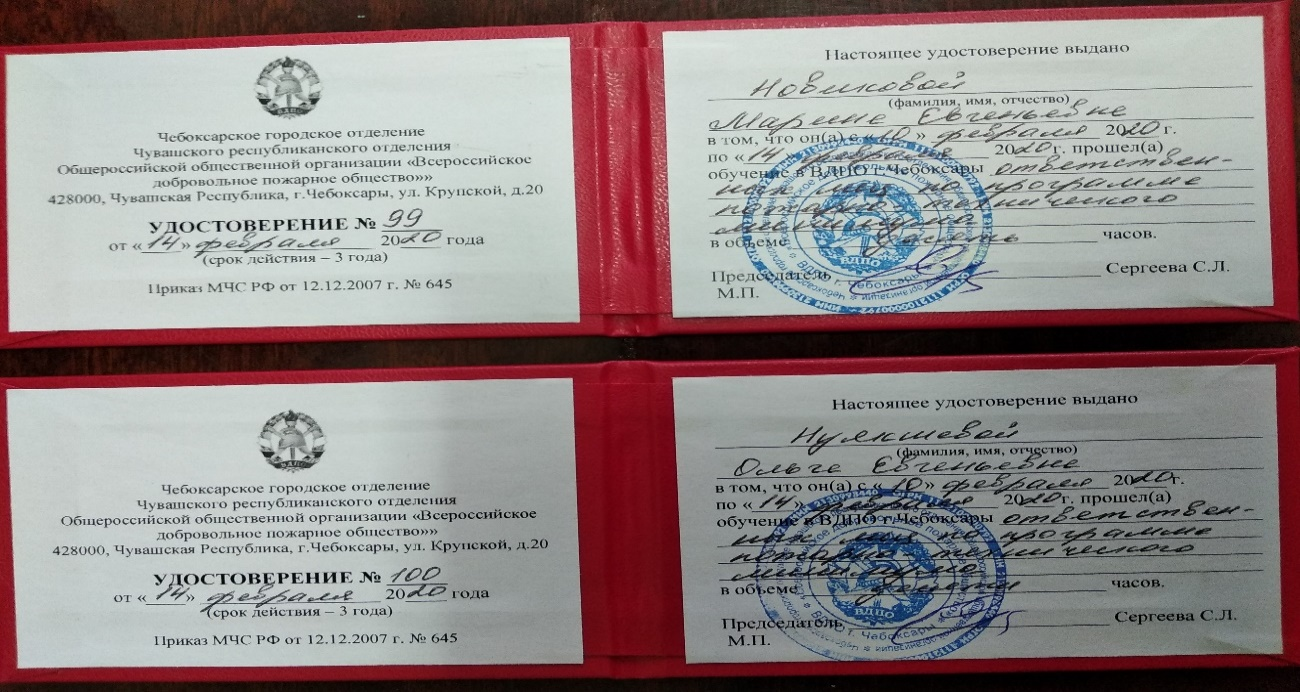 ВДПО
Чебоксарское городское отделение
Чувашского республиканского отделения
Общероссийской общественной организации «Всероссийское
добровольное пожарное общество»»
428000, Чувашская Республика, г.Чебоксары, ул. Крупской, д.20
УДОСТОВЕРЕНИЕ № 99
от «14» февраля 2020 года
(срок действия – 3 года)
Приказ МЧС РФ от 12.12.2007 г. № 645
Настоящее удостоверение выдано
Новиковой
(фамилия, имя, отчество)
Марине Евгеньевне
в том, что он(а) с «10» февраля 2020 г.
по «14» февраля 2020 г. прошел(а)
обучение в ВДПО г.Чебоксары ответствен-
ных лиц по программе
пожарно-технического
минимума
в объеме часов.
Председатель Сергеева С.Л.
М.П.
ВДПО
г. Чебоксары
ВДПО
Чебоксарское городское отделение
Чувашского республиканского отделения
Общероссийской общественной организации «Всероссийское
добровольное пожарное общество»»
428000, Чувашская Республика, г.Чебоксары, ул. Крупской, д.20
УДОСТОВЕРЕНИЕ № 100
от «14» февраля 2020 года
(срок действия – 3 года)
Приказ МЧС РФ от 12.12.2007 г. № 645
Настоящее удостоверение выдано
Нуякшевой
(фамилия, имя, отчество)
Ольге Евгеньевне
в том, что он(а) с «10» февраля 2020г.
по «14» февраля 2020г. прошел(а)
обучение в ВДПО г.Чебоксары ответствен-
ных лиц по программе
пожарно-технического
минимума
в объеме часов.
Председатель Сергеева С.Л.
М.П.
ВДПО
г. Чебоксары